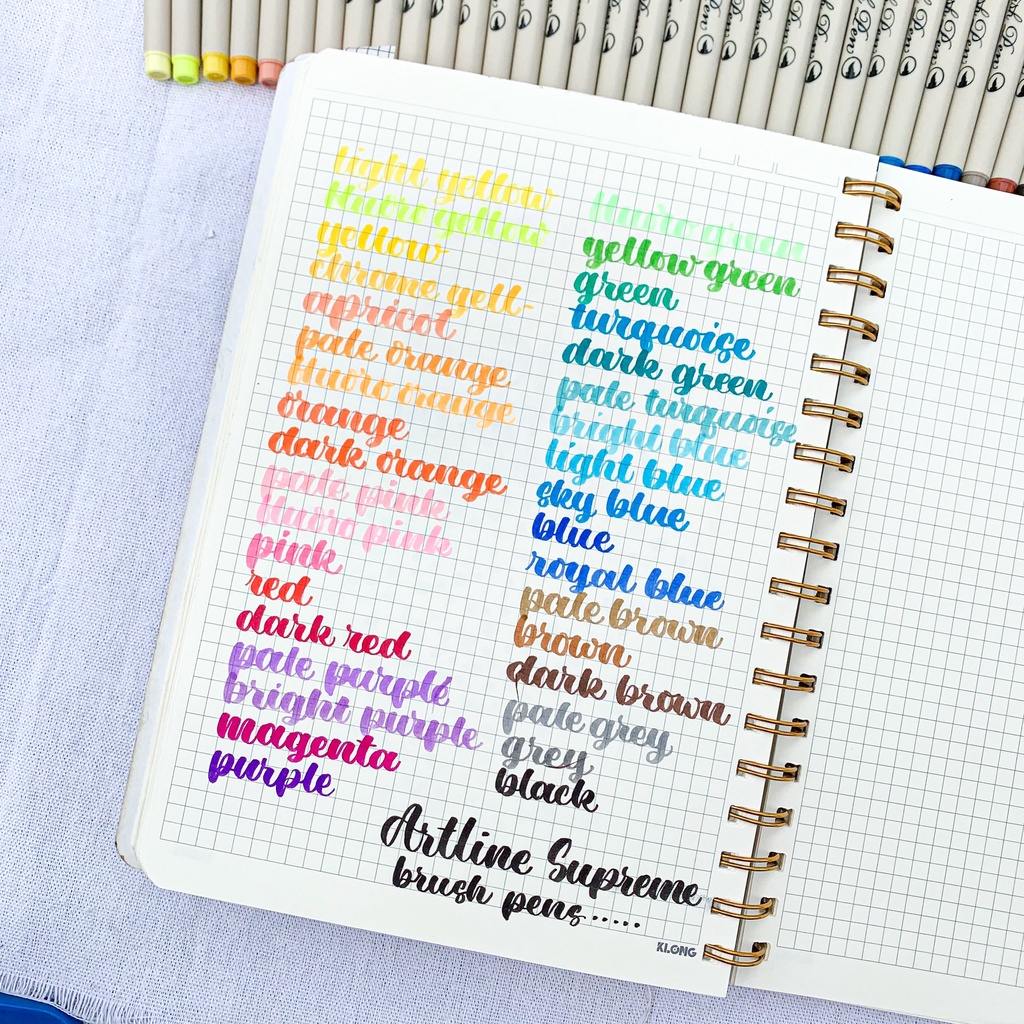 light yellow
fluoro yellow
yellow
chrome yell-
apricot
pale orange
fluoro orange
orange
dark orange
pale pink
fluoro pink
pink
red
dark red
pale purple
bright purple
magenta
purple
fluoro green
yellow green
green
turquoise
dark green
pale turquoise
bright blue
light blue
sky blue
blue
royal blue
pale brown
brown
dark brown
pale grey
grey
black
Artline Supreme
brush pens.....
KLONG